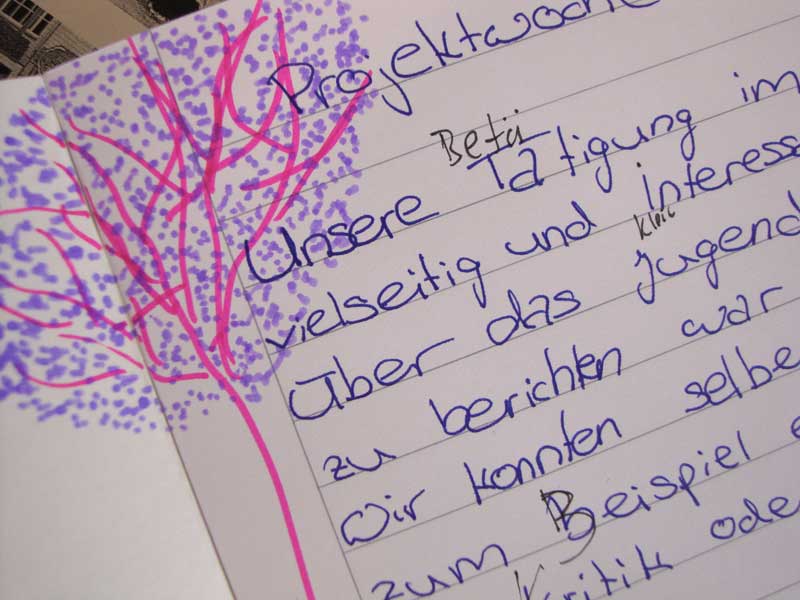 Projektwoche
Betä
Unsere Tätigung im
vielseitig und interess
klein
über das Jugend
zu berichten war
Wir konnten selbe
zum Beispiel e
Kritik ode